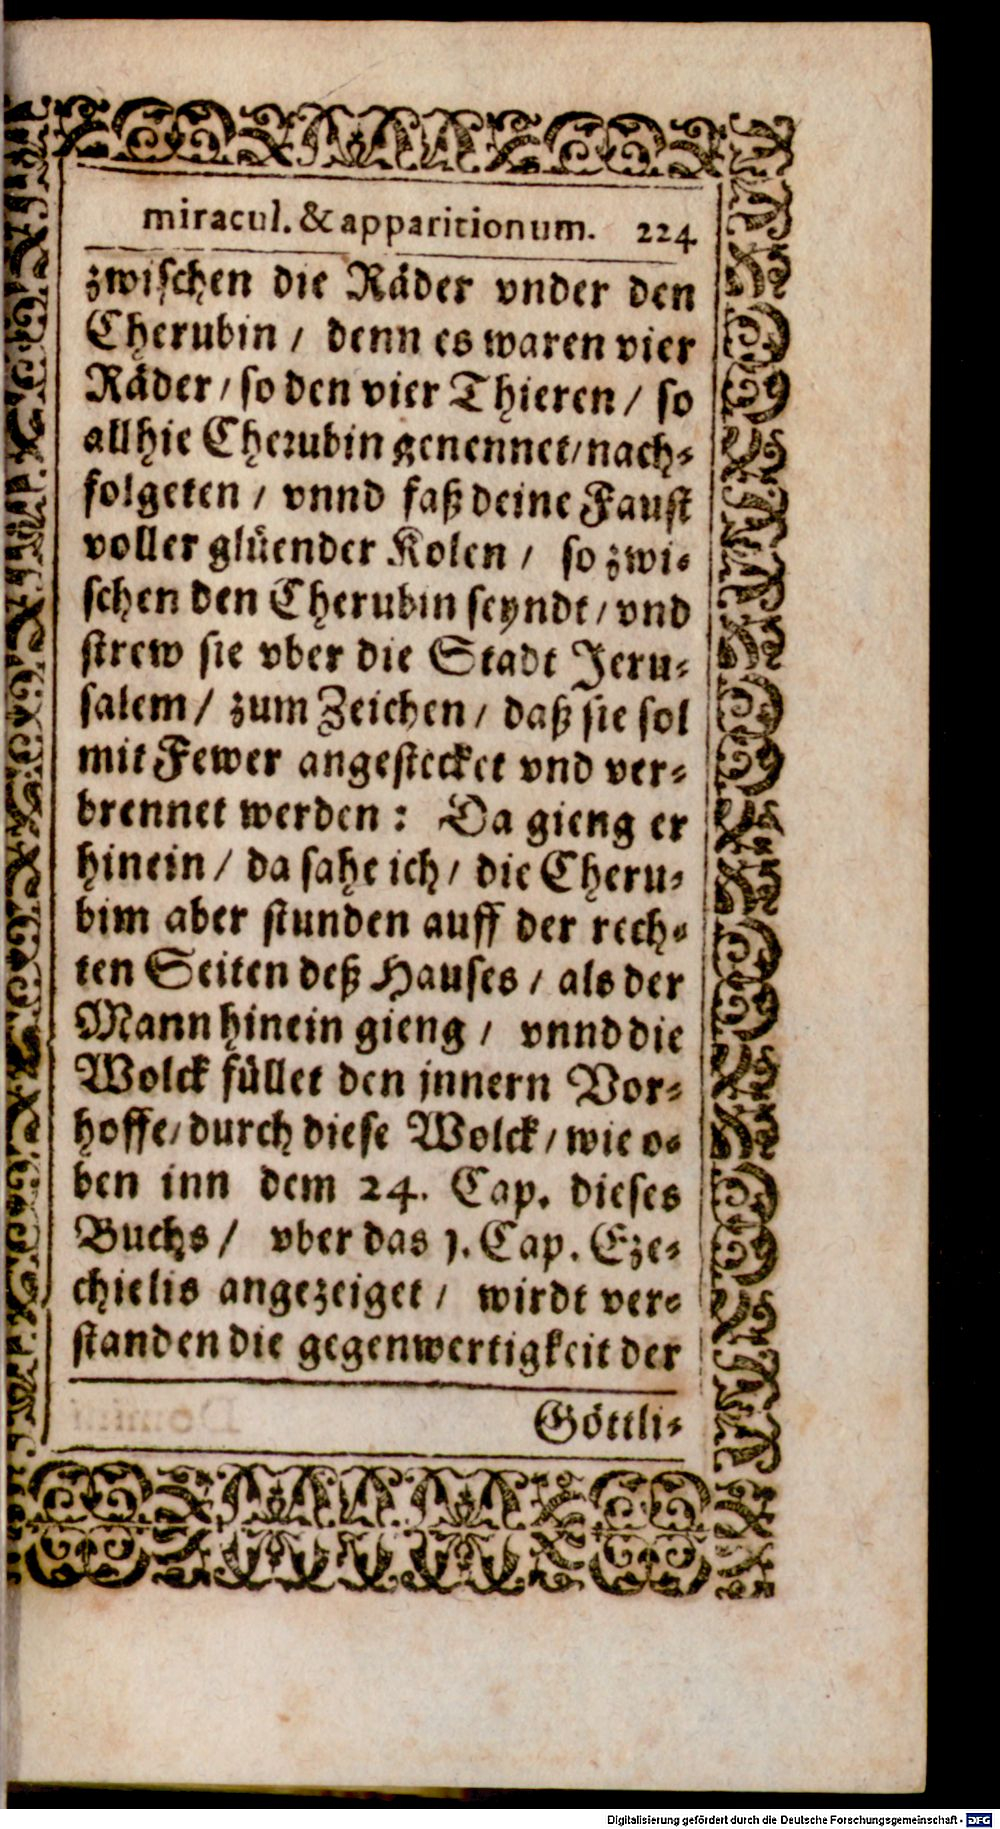 miracul. & apparitionum. 224
zwischen die Räder vnder den
Cherubin / denn es waren vier
Räder / so den vier Thieren / so
allhie Cherubin genennet / nach-
folgeten / vnnd faß deine Faust
voller glüender Kolen / so zwi-
schen den Cherubin seyndt / vnd
strew sie vber die Stadt Jeru-
salem / zum Zeichen / daß sie sol
mit Fewer angestecket vnd ver-
brennet werden : Da gieng er
hinein / da sahe ich / die Cheru-
bim aber stunden auff der rech-
ten Seiten deß Hauses / als der
Mann hinein gieng / vnnd die
Wolck füllet den jnnern Vor-
hoffe / durch diese Wolck / wie o-
ben inn dem 24. Cap. dieses
Buchs / vber das 1. Cap. Eze-
chielis angezeiget / wirdt ver-
standen die gegenwertigkeit der
Göttli-
Digitalisierung gefördert durch die Deutsche Forschungsgemeinschaft - DFG